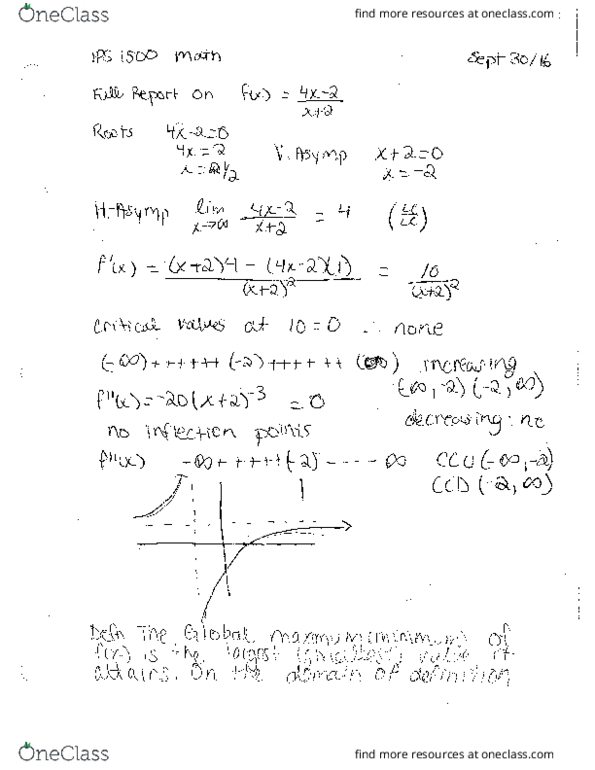 OneClass
find more resources at oneclass.com
IPS 1500 math
Sept 30/16
Full Report on f(x) = 4x-2/x+2
Roots 4x-2=0
4x=2
x=1/2
V. Asymp x+2=0
x=-2
H.-Asymp lim x→∞ 4x-2/x+2 = 4 (LC/LC)
f'(x) = (x+2)4 - (4x-2)(1)/(x+2)² = 10/(x+2)²
critical values at 10=0 ∴ none
(-∞)++++++(-2)++++++(∞) increasing
(∞,-2)(-2,∞)
f''(x)=-20(x+2)⁻³ =0
decreasing: no
no inflection points
f''(x) -∞+++++(-2)----∞ CCU(-∞,-2)
CCD(-2,∞)
Defn The Global maximum(minimum) of
f(x) is the largest (smallest) value it
attains. On the domain of definition
OneClass
find more resources at oneclass.com